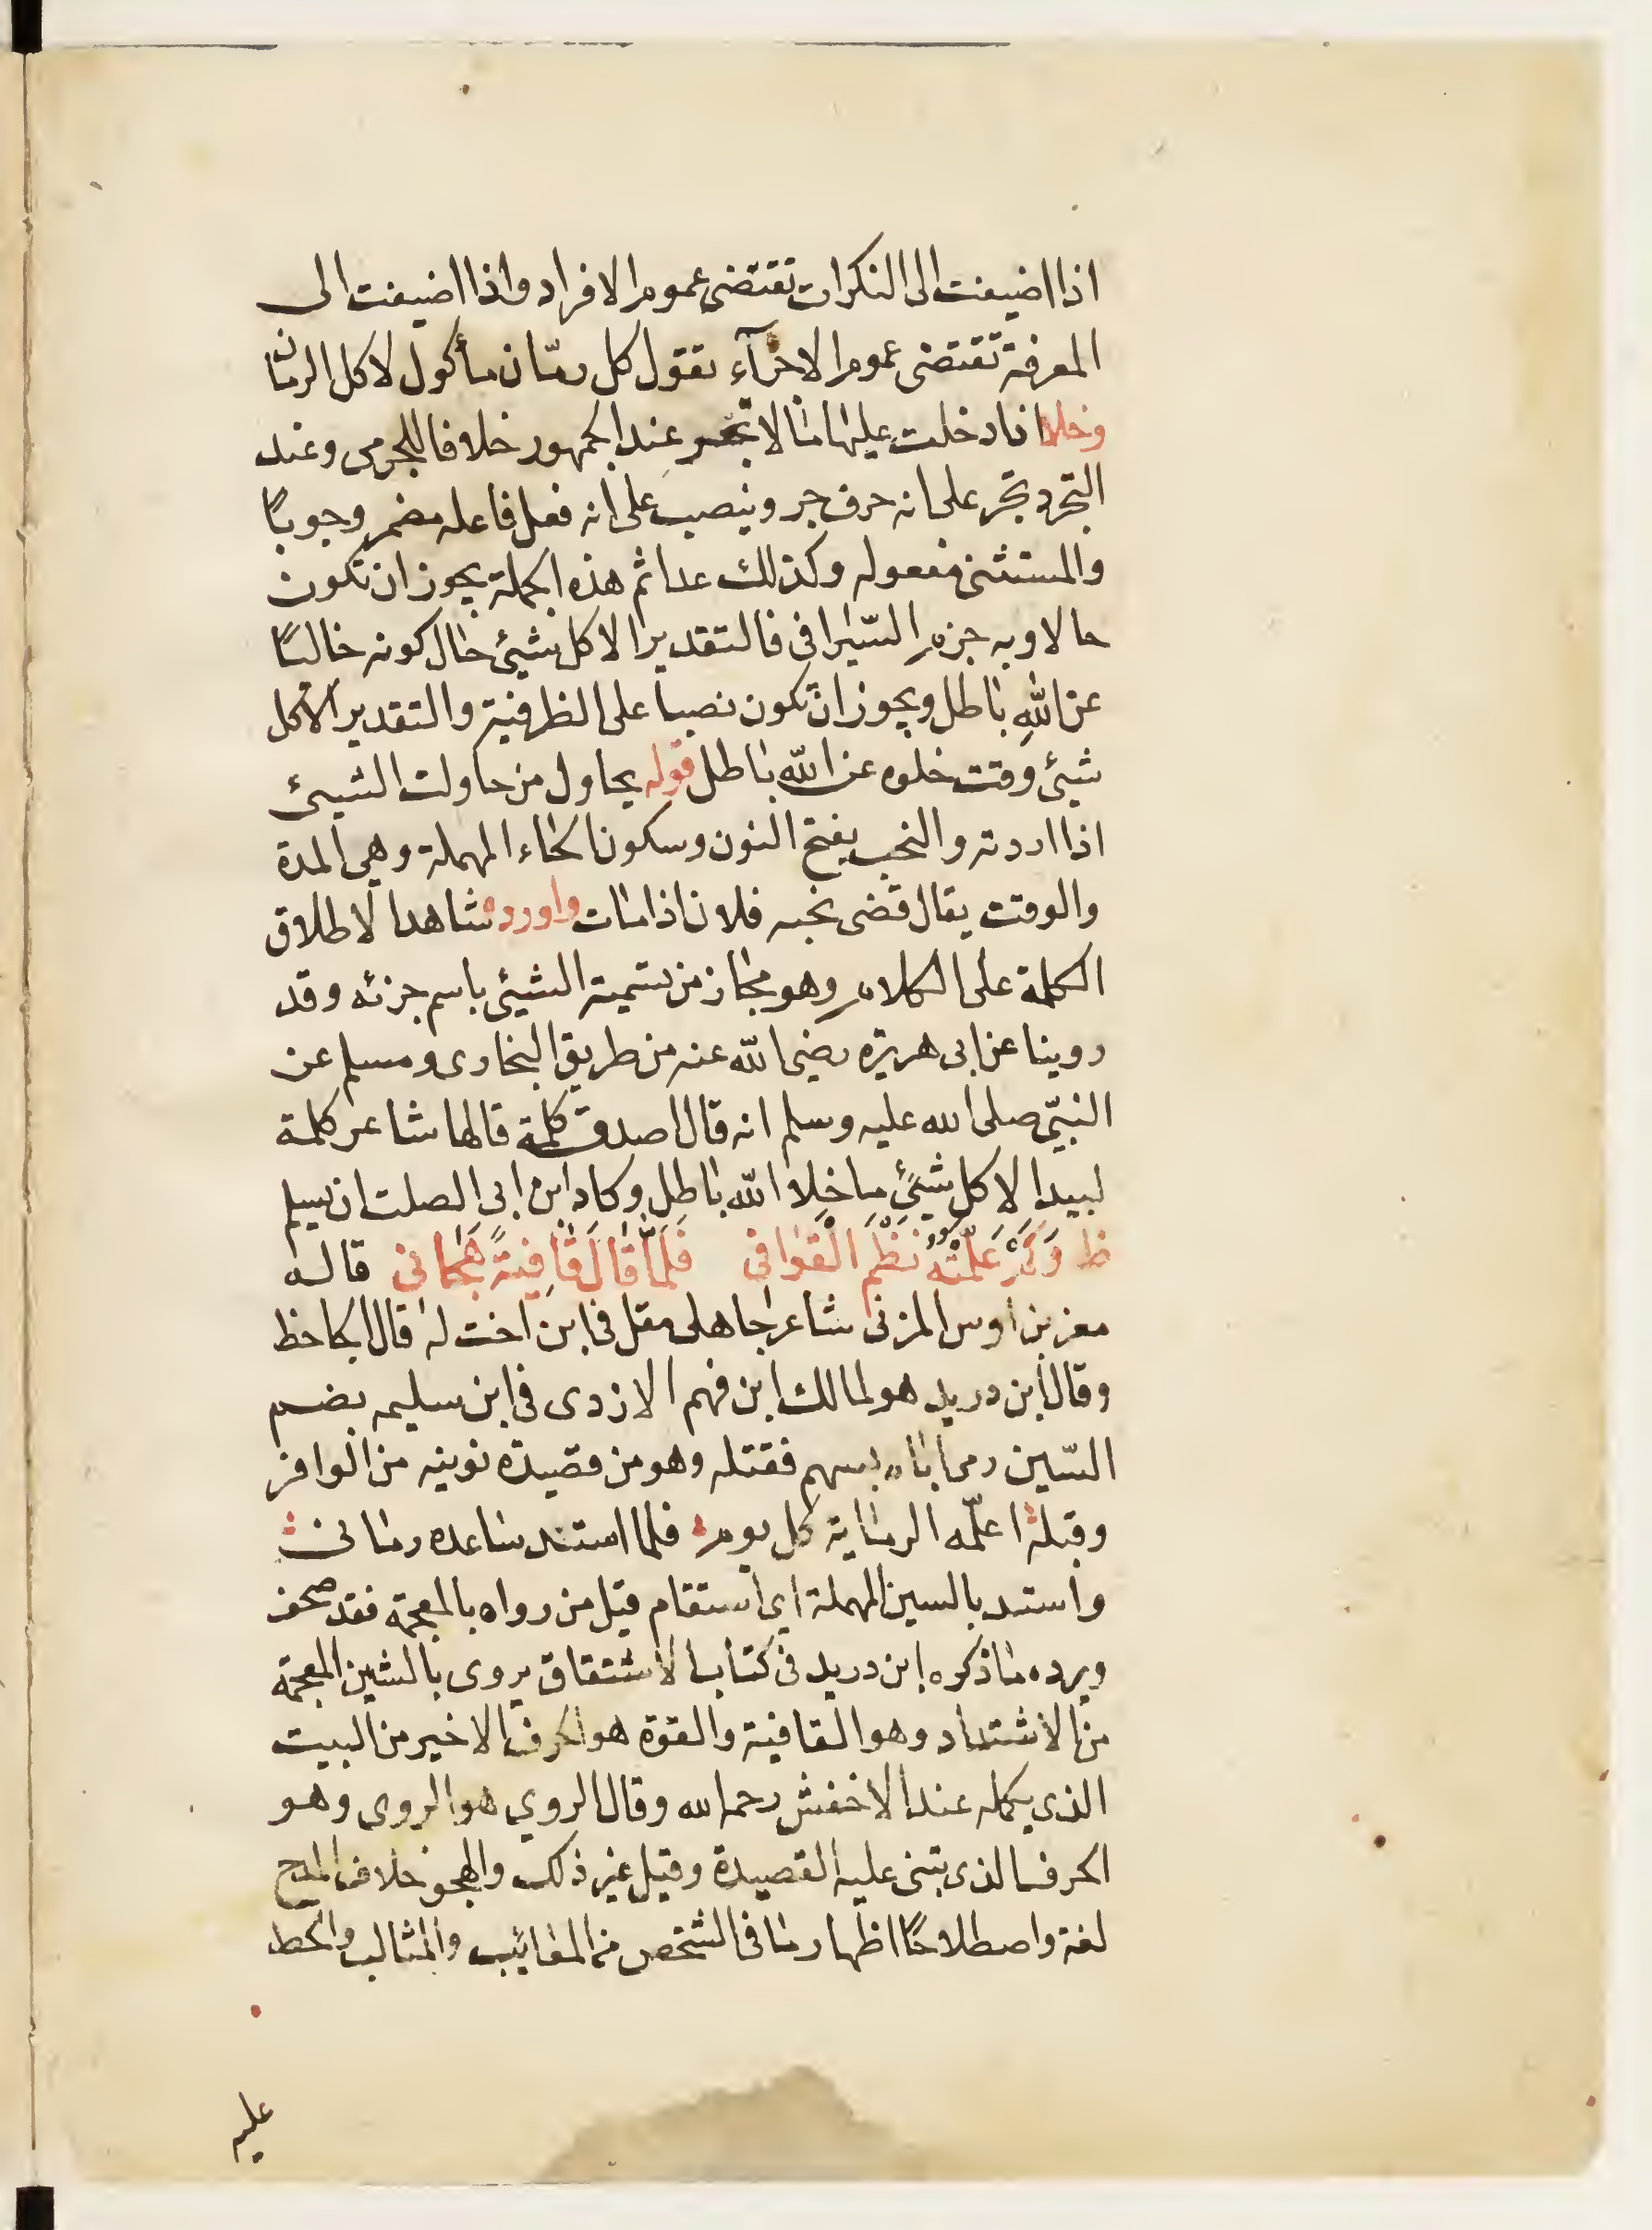 اذا اضيفت الى النكرات تقتضى عموم الافراد واذا اضيفت الى
المعرفة تقتضى عموم الاجزآء تقول كل رمّان مأكول لا كل الرمان
وخلا اذا دخلت عليها ما لا تجر عند الجمهور خلافا للجرمى وعند
التجرد تجر على انه حرف جر وينصب على انه فعل فاعله مضمر وجوبًا
والمستثنى مفعوله وكذلك عدا ثم هذه الجملة يجوز ان تكون
حالا وبه جزم السّيرافى فالتقدير الا كل شيئ حال كونه خاليًا
عن الله باطل ويجوز ان تكون نصبا على الظرفية والتقدير الا كل
شيئ وقت خلوه عن الله باطل قوله يحاول من حاولت الشيئ
اذا اردته والنحب بفتح النون وسكون الحاء المهملة وهى المدة
والوقت يقال قضى نحبه فلان اذا مات واورده شاهدا لاطلاق
الكلمة على الكلام وهو مجاز من تسمية الشيئ باسم جزئه وقد
روينا عن ابى هريرة رضى الله عنه من طريق البخارى ومسلم عن
النبىّ صلى الله عليه وسلم انه قال اصدق كلمة قالها شاعر كلمة
لبيد الا كل شيئ ما خلا الله باطل وكاد ابن ابى الصلت ان يسلم
ظ وَكَمْ عَلَّمْتُهُ نَظْمَ الْقَوَافى فَلَمَّا قَالَ قَافِيَةً هَجَانى قاله
معن بن اوس المزنى شاعر جاهلى مقل فى ابن اخت له قال الجاحظ
وقال ابن دريد هو لمالك ابن فهم الازدى فى ابن سليمه بضم
السّين رمى اباه بسهم فقتله وهو من قصيدة نونيه من الوافر
وقبله اعلّمه الرماية كل يوم فلما استد ساعده رمانى
واستد بالسين المهملة اى استقام قيل من رواه بالمعجمة فقد صحف
ويرده ما ذكره ابن دريد فى كتاب الاشتقاق يروى بالشين المعجمة
من الاشتداد وهو القافية والقوة هو الحرف الاخير من البيت
الذى يكمله عند الاخفش رحمه الله وقال الروي هو الروى وهو
الحرف الذى تبنى عليه القصيدة وقيل غير ذلك والهجو خلاف المدح
لغة واصطلاحًا اظهار ما فى الشخص من المعائيب والمثالب والحط
عليه